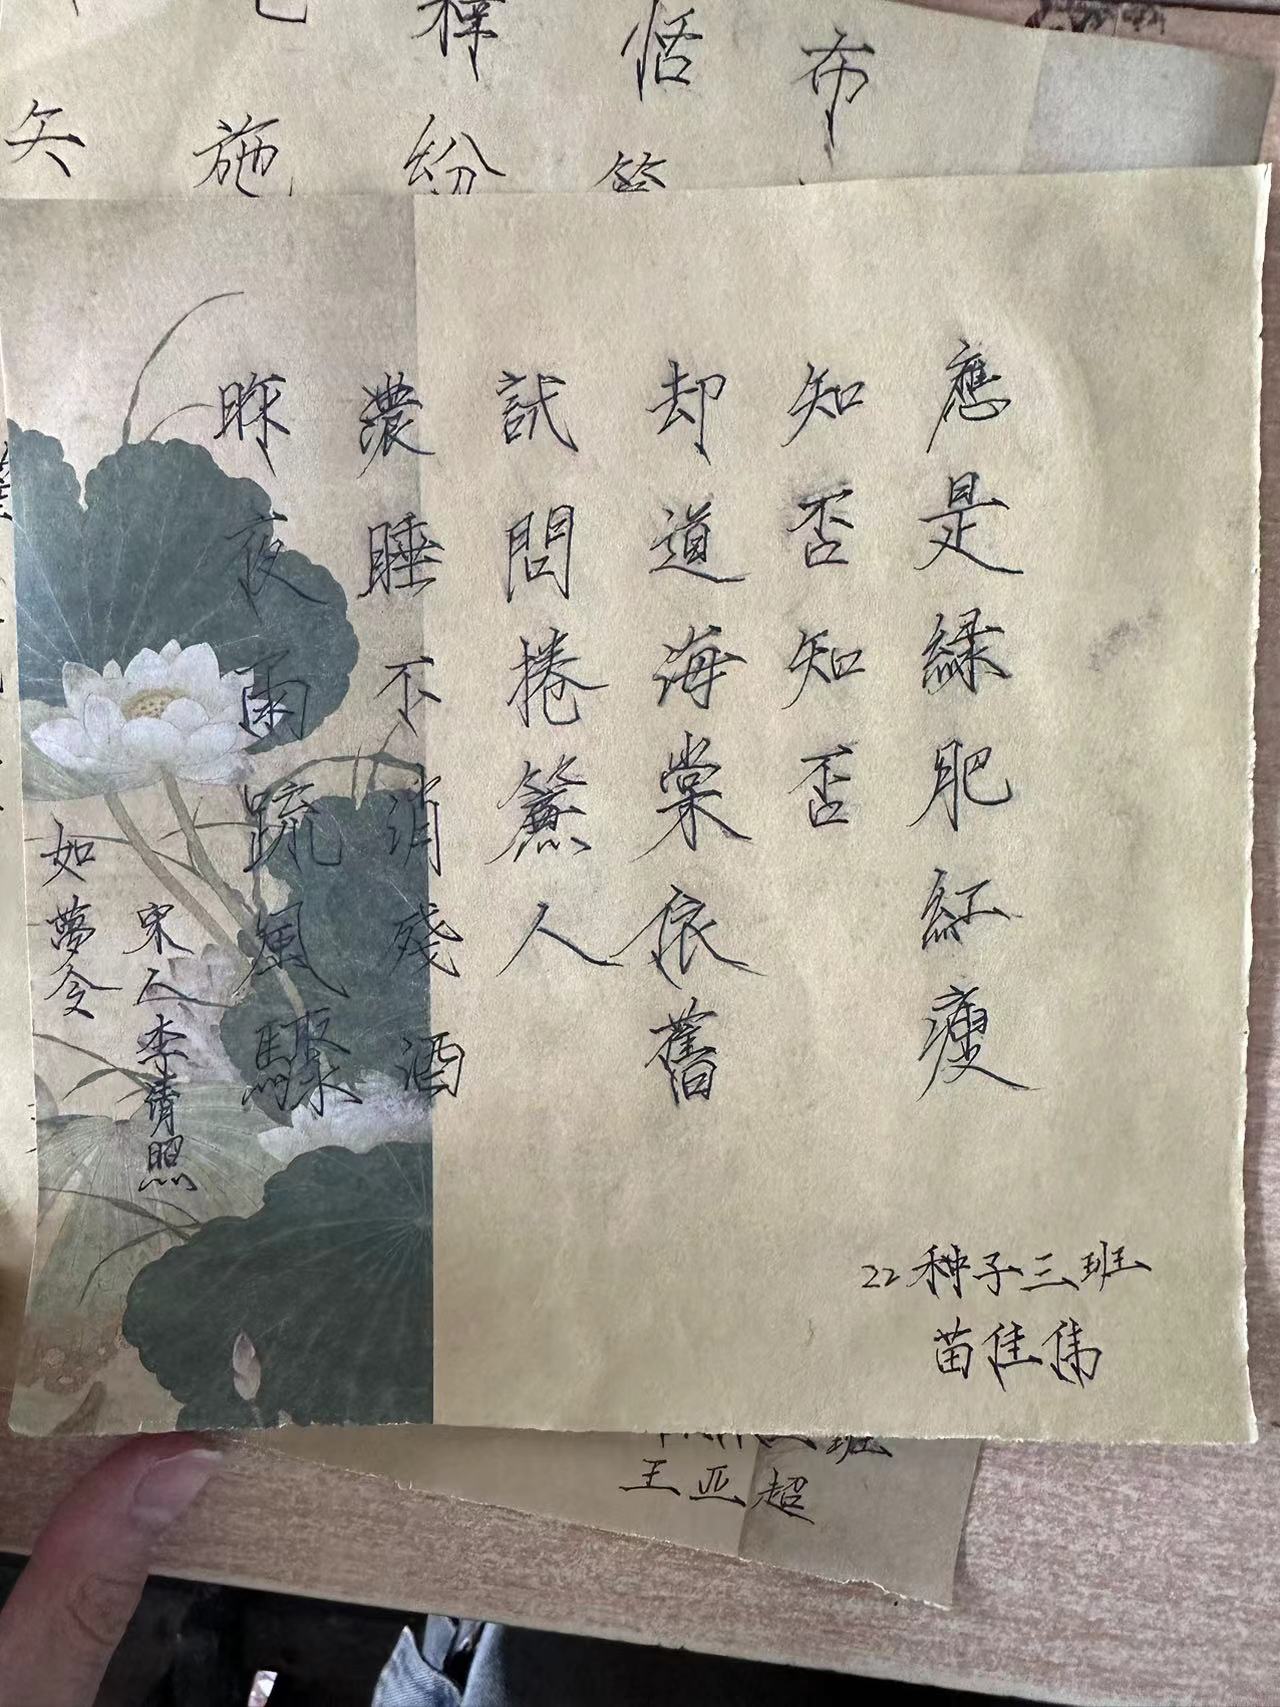 矢
施
釋紛
恬
布
如夢令
宋人李清照
昨夜雨疏風驟
濃睡不消殘酒
試問捲簾人
却道海棠依舊
知否知否
應是緑肥紅瘦
22种子三班
苗佳伟
三班
王亚超